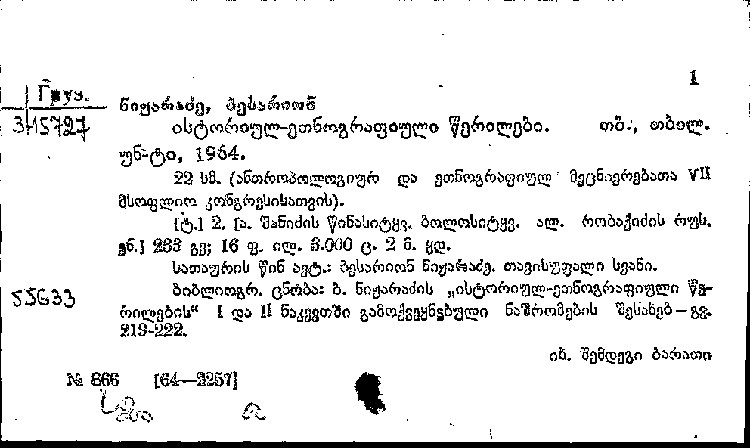 1
Груз.
ნიჟარაძე, ბესარიონ
315727
ისტორიულ-ეთნოგრაფიული წერილები. თბ., თბილ.
უნ-ტი, 1964.
22 სმ. (ანთროპოლოგიურ და ეთნოგრაფიულ მეცნიერებათა VII
მსოფლიო კონგრესისათვის).
[ტ.] 2. [ა. შანიძის წინასიტყვ. ბოლოსიტყვ. ალ. რობაქიძის რუს.
ენ.] 233 გვ; 16 ფ. ილ. 3.000 ც. 2 მ. ყდ.
სათაურის წინ ავტ.: ბესარიონ ნიჟარაძე. თავისუფალი სვანი.
55G33
ბიბლიოგრ. ცნობა: ბ. ნიჟარაძის „ისტორიულ-ეთნოგრაფიული წე-
რილების“ I და II ნაკვეთში გამოქვეყნებული ნაშრომების შესახებ — გვ.
219-222.
იხ. შემდეგი ბარათი
№ 866 [64—2257]